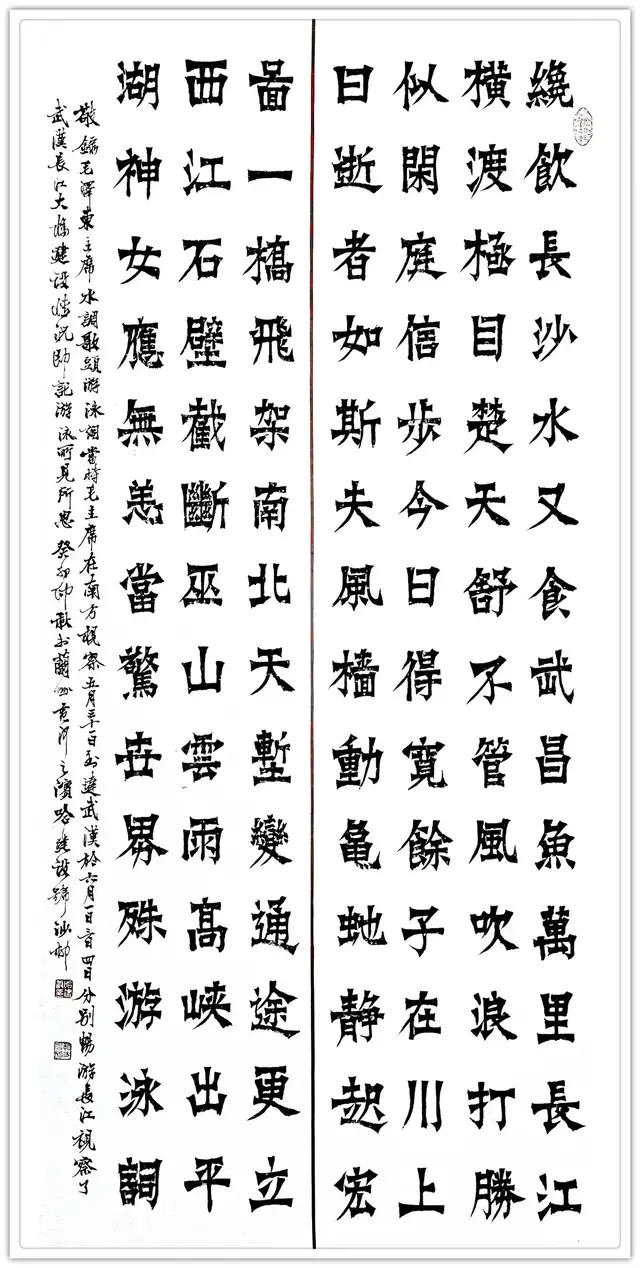 纔飲長沙水又食武昌魚萬里長江
橫渡極目楚天舒不管風吹浪打勝
似閑庭信步今日得寬餘子在川上
曰逝者如斯夫風檣動龜蛇静起宏
啚一橋飛架南北天塹變通途更立
西江石壁截斷巫山雲雨高峽出平
湖神女應無恙當驚世界殊游泳詞
敬錄毛澤東主席水調歌頭游泳詞當時毛主席在南方視察五月三十一日到達武漢於六月一日三四日分别暢游長江視察了
武漢長江大橋建設情況即記游泳所見所思癸卯仲秋书蘭州黄河之濱哈建設號沙柳